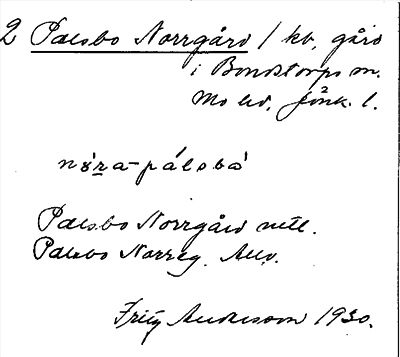 2 Palsbo Norrgård / kv, gård
i Bondstorps sn.
Mo hd, Jönk. l.
nó̤ra-pálsbà
Palsbo Norrgård uttl.
Palsbo Norreg.
Fritz Andersson 1930.